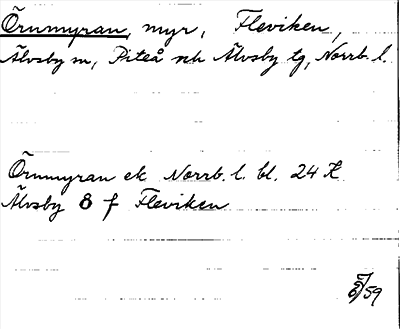 Örnmyran, myr, Fleviken,
Älvsby sn, Piteå och Älvsby tg, Norrb. l.
Örnmyran ek Norrb. l. bl. 24 K
Älvsby 8 f Fleviken
/59